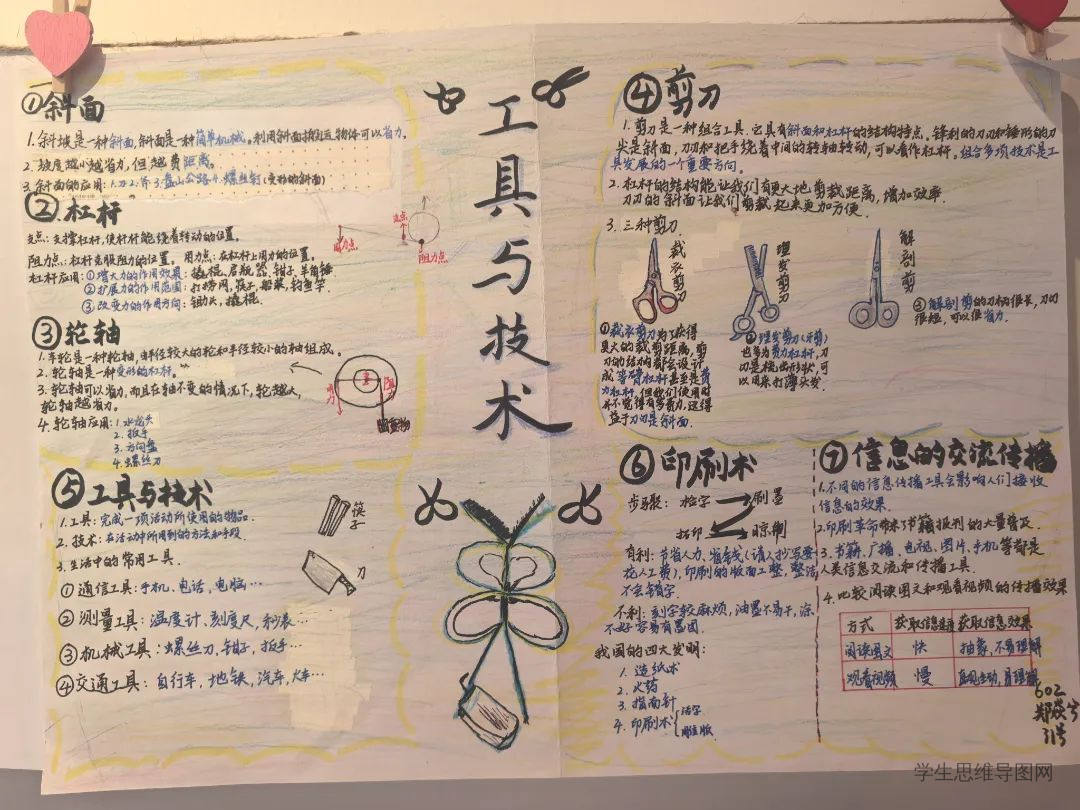 工具与技术
①斜面
1.斜坡是一种斜面,斜面是一种简单机械。利用斜面搬运物体可以省力。
2.坡度越小越省力,但越费距离。
3.斜面的应用:1.刀2.斧3.盘山公路4.螺丝钉(变形的斜面)
②杠杆
支点:支撑杠杆,使杆杆能绕着转动的位置。
阻力点:杠杆克服阻力的位置。用力点:在杠杆上用力的位置。
杠杆应用:①增大力的作用效果:撬棍、启瓶器、钳子、羊角锤
②扩展力的作用范围:打捞网,筷子,船桨,钓鱼竿.
③改变力的作用方向:锄头,撬棍.
用力点
支点
阻力点
③轮轴
1.车轮是一种轮轴,半径较大的轮和半径较小的轴组成。
2.轮轴是一种变形的杠杆。
3.轮轴可以省力,而且在轴不变的情况下,轮越大,
轮轴越省力。
4.轮轴应用:1.水龙头
2.扳手
3.方向盘
4.螺丝刀
重物
⑤工具与技术
1.工具:完成一项活动所使用的物品.
2.技术:在活动中所用到的方法和手段.
3.生活中的常用工具.
①通信工具:手机、电话、电脑…
②测量工具:温度计、刻度尺,秒表…
③机械工具:螺丝刀,钳子,扳手…
④交通工具:自行车,地铁,汽车,火车…
筷子
刀
④剪刀
1.剪刀是一种组合工具.它具有斜面和杠杆的结构特点。锋利的刀刃和锥形的刀
尖是斜面,刀刃和把手绕着中间的转轴转动,可以看作杠杆。组合多项技术是工
具发展的一个重要方向。
2.杠杆的结构能让我们有更大地剪裁距离,增加效率.
刀刃的斜面让我们剪裁起来更加方便.
3.三种剪刀
裁衣剪刀
理发剪刀
解剖剪
①裁衣剪刀为了获得
更大的裁剪距离,剪
刀的结构都会设计
成等臂杠杆甚至是费
力杠杆,但我们使用时
并不觉得有多费力,这得
益于刀刃是斜面.
②理发剪刀(牙剪)
也多为费力杠杆,刀
刃是梳齿形状,可
以用来打薄头发.
③解剖剪的刀柄很长,刀刃
很短,可以很省力.
⑥印刷术
步骤:检字 刷墨
拓印 晾刷
有利:节省人力、省单线(请人抄写要
花人工费),印刷的版面工整,整洁,
不会错字.
不利:刻字较麻烦,油墨不易干,涂
不好容易有墨团.
我国的四大发明:
1.造纸术
2.火药
3.指南针
4.印刷术
活字
雕版
⑦信息的交流传播
1.不同的信息传播工具会影响人们接收
信息的效果.
2.印刷革命带来了书籍报刊的大量普及.
3.书籍、广播、电视、图片、手机等都是
人类信息交流和传播工具.
4.比较阅读图文和观看视频的传播效果
方式 获取信息速度 获取信息效果
阅读图文 快 抽象,不易理解
观看视频 慢 直观生动,易理解
602
31号
学生思维导图网